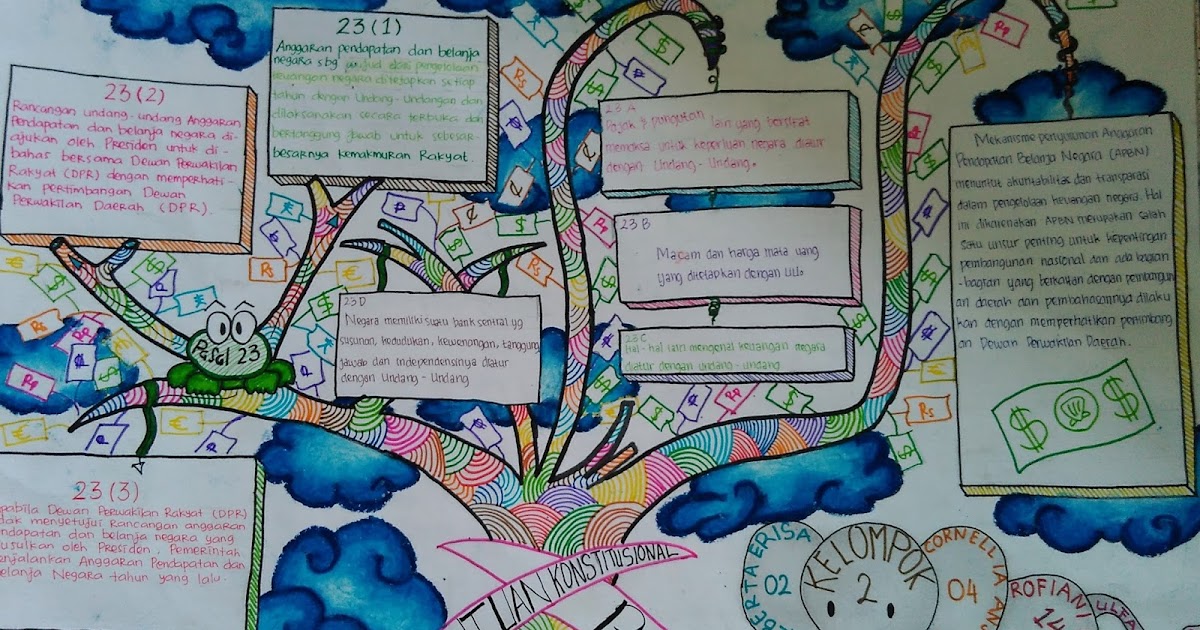 23 (1)
Anggaran pendapatan dan belanja
negara sbg wujud dari pengelolaan
keuangan negara ditetapkan setiap
tahun dengan Undang-Undangan dan
dilaksanakan secara terbuka dan
bertanggung jawab untuk sebesar-
besarnya kemakmuran Rakyat.
23 (2)
Rancangan undang-undang Anggaran
Pendapatan dan belanja negara di-
ajukan oleh Presiden untuk di-
bahas bersama Dewan Perwakilan
Rakyat (DPR) dengan memperhati-
kan pertimbangan Dewan
Perwakilan Daerah (DPR).
23 A
Pajak & pungutan lain yang bersifat
memaksa untuk keperluan negara diatur
dengan Undang-Undang.
23 B
Macam dan harga mata uang
yang ditetapkan dengan UU.
23 C
Hal-hal lain mengenai keuangan negara
diatur dengan undang-undang
23 D
Negara memiliki suatu bank sentral yg
susunan, kedudukan, kewenangan, tanggung
jawab dan independensinya diatur
dengan Undang-Undang
Mekanisme penyusunan Anggaran
Pendapatan Belanja Negara (APBN)
menuntut akuntabilitas dan transparasi
dalam pengelolaan keuangan negara. Hal
ini dikarenakan APBN merupakan salah
satu unsur penting untuk kepentingan
pembangunan nasional dan ada bagian
-bagian yang berkaitan dengan pembangun
an daerah dan pembahasannya dilaku
kan dengan memperhatikan pertimbang
an Dewan Perwakilan Daerah.
Pasal 23
23 (3)
pabila Dewan Perwakilan Rakyat (DPR)
dak menyetujui Rancangan anggaran
ndapatan dan belanja negara yang
usulkan oleh Presiden, Pemerintah
enjalankan Anggaran Pendapatan dan
elanja Negara tahun yang lalu.
KONSTITUSIONAL
BERTA ERISA
02
KELOMPOK
2
CORNELLIA AN
04
ROFIAN
14
ULFA